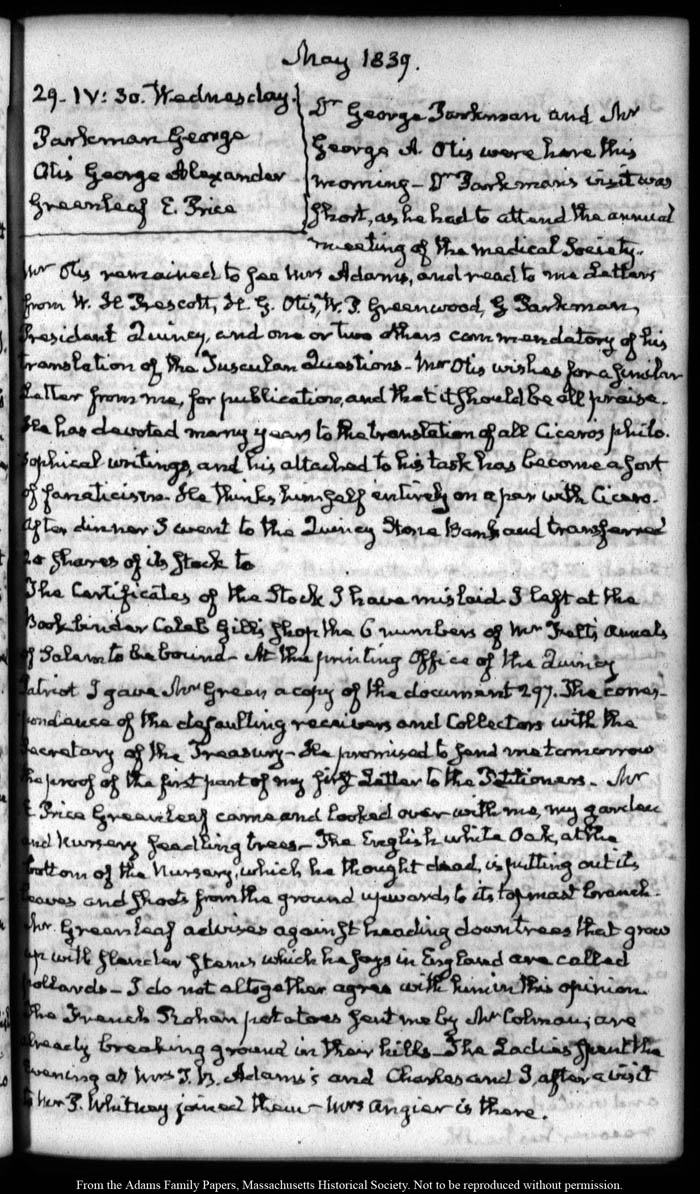 May 1839.
29. IV: 30. Wednesday.
Parkman George
Otis George Alexander
Greenleaf E. Price
Dr George Parkman and Mr
George A. Otis were here this
morning – Dr Parkman's visit was
short, as he had to attend the annual
meeting of the medical Society.
Mr Otis remained to see Mrs Adams, and read to me Letters
from W. H. Prescott, H. G. Otis, W. P. Greenwood, G Parkman,
President Quincy, and one or two others commendatory of his
translation of the Tusculan Questions – Mr Otis wishes for a similar
Letter from me, for publication, and that it should be all praise.
He has devoted many years to the translation of all Cicero's philo-
sophical writings, and his attached to his task has become a sort
of fanaticism. He thinks himself entirely on a par with Cicero.
After dinner I went to the Quincy Stone Bank and transferred
20 shares of its Stock to
The Certificates of the Stock I have mislaid. I left at the
Bookbinder Caleb Gill's shop the 6 numbers of Mr Felt's Annals
of Salem to be bound – At the printing Office of the Quincy
Patriot I gave Mr Green a copy of the document 297. The corres-
pondence of the defaulting receivers and Collectors with the
Secretary of the Treasury – He promised to send me tomorrow
the proof of the first part of my first Letter to the Petitioners – Mr
E Price Greenleaf came and looked over with me, my garden
and Nursery seedling trees – The English white Oak, at the
bottom of the Nursery, which he thought dead, is putting out its
leaves and shoots from the ground upwards to its topmast branch.
Mr. Greenleaf advises against heading down trees that grow
up with slender stems which he says in England are called
pollards – I do not altogether agree with him in this opinion
The French Rohan potatoes sent me by Mr Colman, are
already breaking ground in their hills – The Ladies spent the
evening at Mrs T. B. Adams's and Charles and I, after a visit
to Mr P. Whitney joined them – Mrs Angier is there.
From the Adams Family Papers, Massachusetts Historical Society. Not to be reproduced without permission.